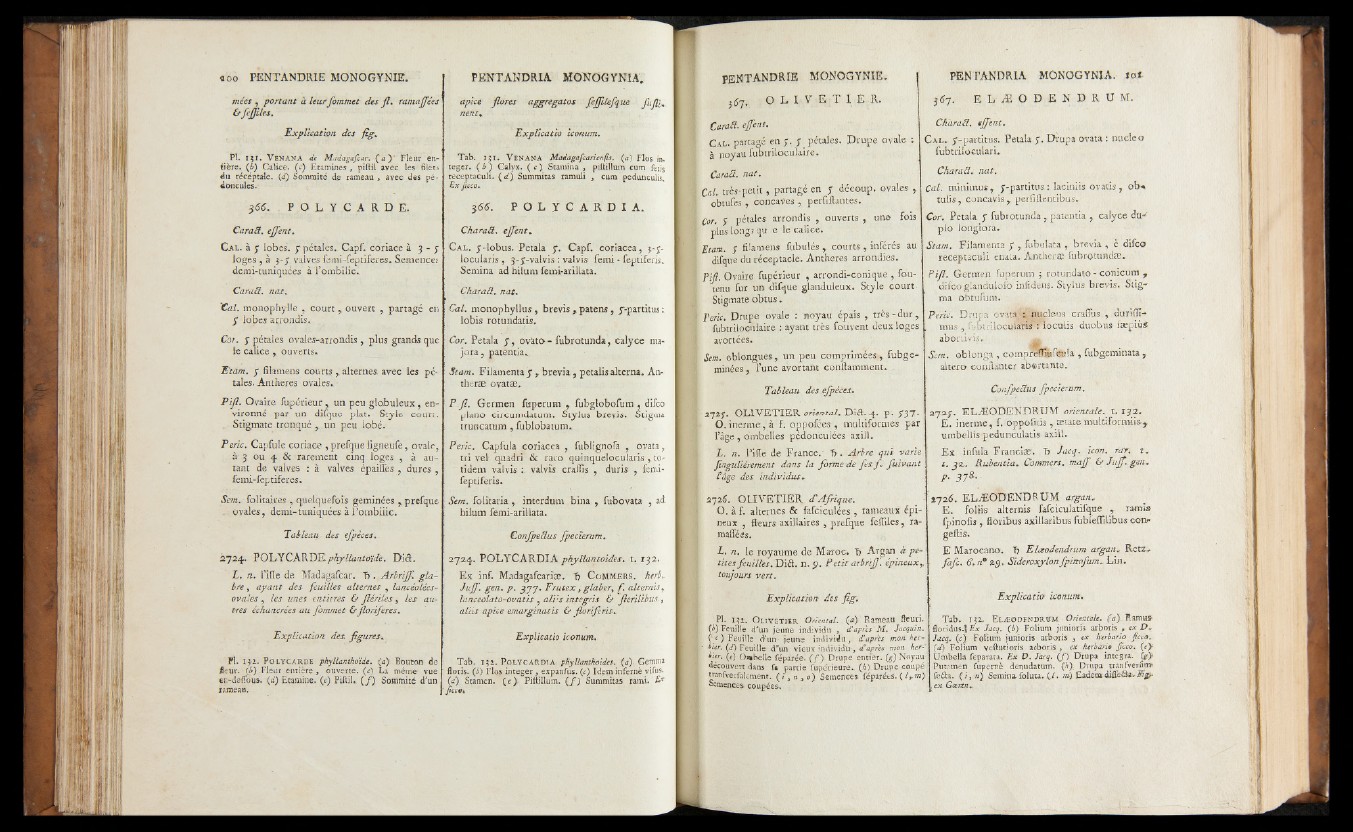 200 PENTANDRIE MONOGYNIE.
mées, portant à leur ſommet des fl. ramaſſées
& ſeſſiles.
Explication des fig.
Pl. 131. VENANA de Madagaſcar. (a) Fleur en-
tière. (b) Calice. (c) Etamines, piſtil avec les filets
du réceptale. (d) Sommité de rameau, avec des pé-
doncules.
366. POLYCARDE.
Caract. eſſent.
CAL. à 5 lobes. 5 pétales. Capſ. coriace à 3-5
loges, à 3-5 valves ſemi-ſeptiferes. Semences
demi-tuniquées à l'ombilic.
Caract. nat.
Cal. monophylle, court, ouvert, partagé en
5 lobes arrondis.
Cor. 5 pétales ovales-arrondis, plus grands que
le calice, ouverts.
Etam. 5 filamens courts, alternes avec les pé-
tales. Antheres ovales.
Piſt. Ovaire ſupérieur, un peu globuleux, en-
vironné par un diſque plat. Style court.
Stigmate tronqué, un peu lobé.
Peric. Capſule coriace, preſque ligneuſe, ovale,
à 3 ou 4 & rarement cinq loges, à au-
tant de valves : à valves épaiſſes, dures,
ſemi-ſeptiferes.
Sem. ſolitaires, quelquefois geminées, preſque
ovales, demi-tuniquées à l'ombilic.
Tableau des eſpèces.
2724. POLYCARDE phyllantoïde. Dict.
L. n. l'iſle de Madagaſcar. ♄. Arbriſſ. gla-
bre, ayant des feuilles alternes, lancéolées-
ovales, les unes entières & ſtériles, les au-
tres échancrées au ſommet & floriferes.
Explication des figures.
Pl. 132. POLYCARDE phyllanthoïde. (a) Bouton de
fleur. (b) Fleur entière, ouverte. (c) La même vue
en-deſſous. (d) Etamine. (e) Piſtil. (f) Sommité d'un
rameau.
PENTANDRIA MONOGYNIA.
apice flores aggregatos ſeſſileſque ſuſti-
nens.
Explicatio iconum.
Tab. 131. VENANA Madagaſcarienſis. (a) Flos in-
teger. (b) Calyx. (c) Stamina, piſtillum cum ſetis
receptaculi. (d) Summitas ramuli, cum pedunculis.
Ex ſicco.
366. POLYCARDIA.
Charact. eſſent.
CAL. 5-lobus. Petala 5. Capſ. coriacea, 3-5-
locularis, 3-5-valvis : valvis ſemi-ſeptiferis.
Semina ad hilum ſemi-arillata.
Charact. nat.
Cal. monophyllus, brevis, patens, 5-partitus :
lobis rotundatis.
Cor. Petala 5, ovato-ſubrotunda, calyce ma-
jora, patentia.
Stam. Filamenta 5, brevia, petalis alterna. An-
theræ ovatæ.
P ſt. Germen ſuperum, ſubgloboſum, diſco
plano circumdatum. Stylus brevis. Stigma
truncatum, ſublobatum.
Peric. Capſula coriacea, ſublignoſa, ovata,
tri vel quadri & raro quinquelocularis, to-
tidem valvis : valvis craſſis, duris, ſemi-
ſeptiferis.
Sem. ſolitaria, interdum bina, ſubovata, ad
hilum ſemi-arillata.
Conſpectus ſpecierum.
2724. POLYCARDIA phyllantoides. t. 132.
Ex inſ. Madagaſcariæ. ♄ COMMERS. herb.
Juſſ. gen. p. 377. Frutex, glaber, f. alternis,
lanceolato-ovatis, aliis integris & ſterilibus,
aliis apice emarginatis & floriferis.
Explicatio iconum.
Tab. 132. POLYCARDIA phyllanthoides. (a) Gemma
floris. (b) Flos integer, expanſus. (c) Idem infernè viſus.
(d) Stamen. (e) Piſtillum. (f) Summitas rami. Ex
ſicco.
PENTANDRIE MONOGYNIE.
367. OLIVETIER.
Caract. eſſent.
CAL. partagé en 5. 5 pétales. Drupe ovale :
à noyau ſubtriloculaire.
Caract. nat.
Cal. très-petit, partagé en 5 découp. ovales,
obtuſes, concaves, perſiſtantes.
Cor. 5 pétales arrondis, ouverts, une fois
plus longs que le calice.
Etam. 5 filamens ſubulés, courts, inférés au
diſque du réceptacle. Antheres arrondies.
Piſt. Ovaire ſupérieur, arrondi-conique, ſou-
tenu ſur un diſque glanduleux. Style court
Stigmate obtus.
Peric. Drupe ovale : noyau épais, très-dur,
ſubtriloculaire : ayant très ſouvent deux loges
avortées.
Sem. oblongues, un peu comprimées, ſubge-
minées, l'une avortant conſtamment.
Tableau des eſpèces.
2725. OLIVETIER oriental. Dict. 4. p. 537.
O. inerme, à f. oppoſées, multiformes par
l'âge, ombelles pédonculées axill.
L. n. l'iſle de France. ♄. Arbre qui varie
ſinguliérement dans la forme de ſes f. ſuivant
l'âge des individus.
2726. OLIVETIER d'Afrique.
O. à f. alternes & faſciculées, rameaux épi-
neux, fleurs axillaires, preſque ſeſſiles, ra-
maſſées.
L. n. le royaume de Maroc. ♄ Argan à pe-
tites feuilles. Dict. n. 9. Petit arbriſſ. épineux,
toujours vert.
Explication des fig.
Pl. 132. OLIVETIER Oriental. (a) Rameau fleuri.
(b) Feuille d'un jeune individu, d'après M. Jacquin.
(c) Feuille d'un jeune individu, d'après mon her-
bier. (d) Feuille d'un vieux individu, d'après mon her-
bier. (e) Ombelle ſéparée. (f) Drupe entier. (g) Noyau
découvert dans ſa partie ſupérieure. (h) Drupe coupé
tranſverſalement. (i, n, o) Semences ſéparées. (l, m)
Semences coupées.
PENTANDRIA MONOGYNIA. 201
367. ELÆODENDRUM.
Charact. eſſent.
CAL. 5-partitus. Petala 5. Drupa ovata : nucleo
ſubtriloculari.
Charact. nat.
Cal. minimus, 5-partitus : laciniis ovatis, ob-
tuſis, concavis, perſiſtentibus.
Cor. Petala 5 ſubrotunda, patentia, calyce du-
plo longiora.
Stam. Filamenta 5, ſubulata, brevia, è diſco
receptaculi enata. Antheræ ſubrotundæ.
Piſt. Germen ſuperum ; rotundato-conicum,
diſco glanduloſo inſidens. Stylus brevis. Stig-
ma obtuſum.
Peric. Drupa ovata : nucleus craſſus, duriſſi-
mus, ſubtrilocularis : loculis duobus ſæpius
abortivis.
Sem. oblonga, compreſſiuſcula, ſubgeminata,
altero conſtanter abortante.
Conſpectus ſpecierum.
2725. ELÆODENDRUM orientale. t. 132.
E. inerme, f. oppoſitis, ætate multiformis,
umbellis pedunculatis axill.
Ex inſula Franciæ. ♄ Jacq. icon. rar. 1.
t. 32. Rubentia. Commers. maſſ & Juſſ. gen.
p. 378.
2726. ELÆODENDRUM argan.
E. foliis alternis faſciculatiſque, ramis
ſpinoſis, floribus axillaribus ſubſeſſilibus con-
geſtis.
E Marocano. ♄ Elæodendrum argan. Retz.
faſc. 6. n° 29. Sideroxylon ſpinoſum. Lin.
Explicatio iconum.
Tab. 132. ELÆODENDRUM Orientale. (a) Ramus
floridus. Ex Jacq. (b) Folium junioris arboris, ex D.
Jacq. (c) Folium junioris arboris, ex herbario ſicco.
(d) Folium vetuſtioris arboris, ex herbario ſicco. (e)
Umbella ſeparata. Ex D. Jacq. (f) Drupa integra. (g)
Putamen ſupernè denudatum. (h) Drupa tranſverſim
ſecta. (i, n) Semina ſoluta. (l, m) Eadem diſſecta. Fig.
ex Gærtn.